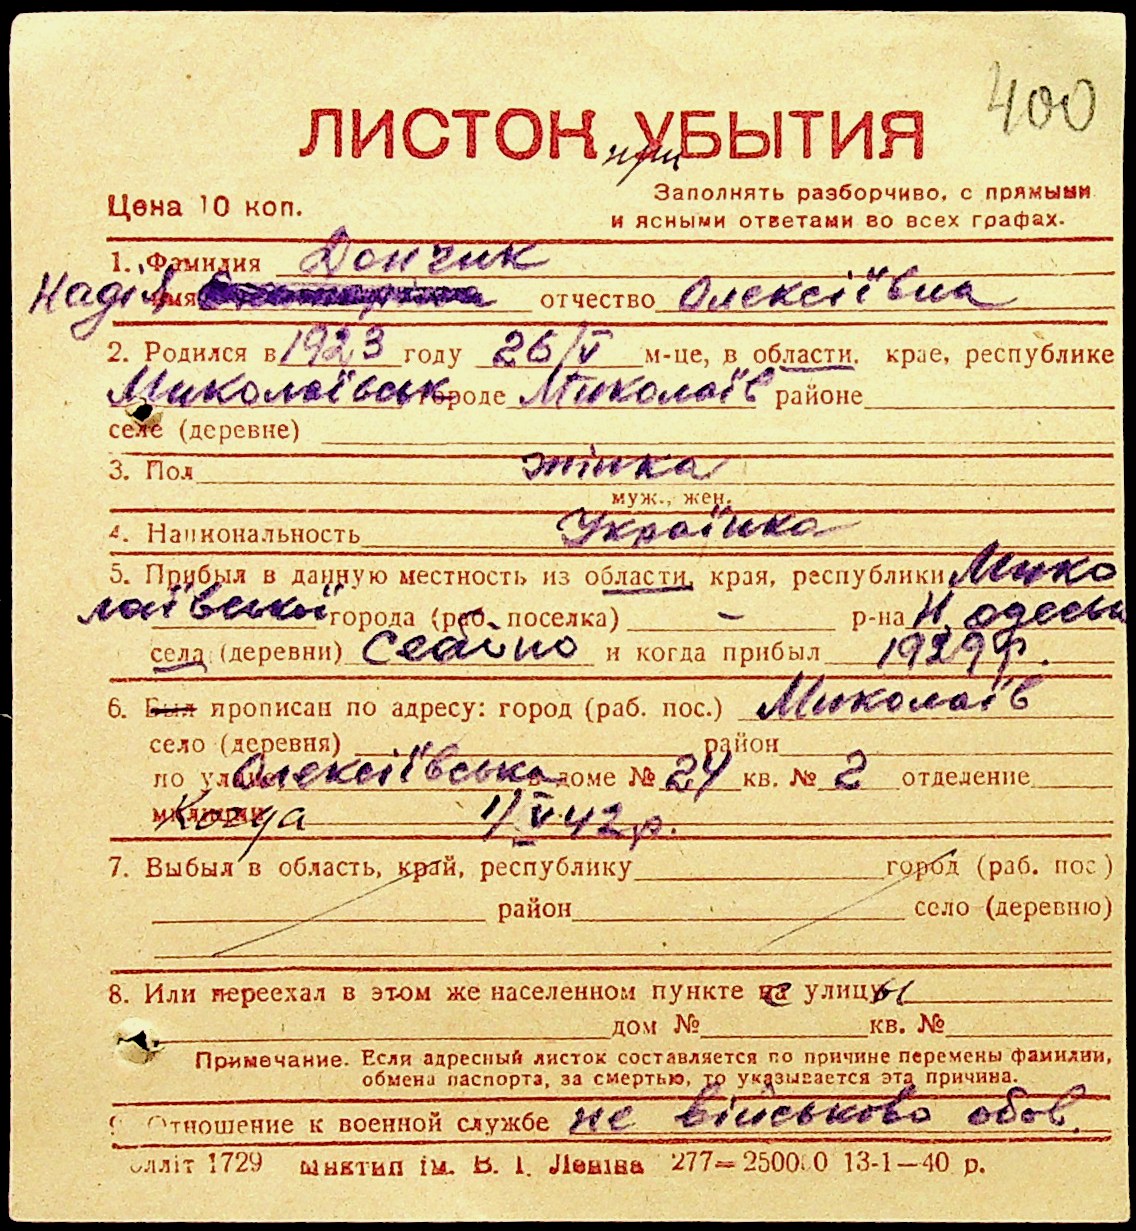 400
ЛИСТОК при УБЫТИЯ
Цена 10 коп.
Заполнять разборчиво, с прямыми
и ясными ответами во всех графах.
1. Фамилия Дончик
Надія имя отчество Олексіївна
2. Родился в 1923 году 26/V м-це, в области, крае, республике
Миколаївськ городе Миколаїв районе
селе (деревне)
3. Пол жінка
муж., жен.
4. Национальность Українка
5. Прибыл в данную местность из области, края, республики Мико
лаївської города (раб. поселка) – р-на Н одеськ
села (деревни) Себино и когда прибыл 1929 р.
6. Был прописан по адресу: город (раб. пос.) Миколаїв
село (деревня) район
по улице Олексіївська доме № 24 кв. № 2 отделение
милиции Когда 1/V 42 р.
7. Выбыл в область, край, республику город (раб. пос.)
район село (деревню)
8. Или переехал в этом же населенном пункте на с улицу ы
дом № кв. №
Примечание. Если адресный листок составляется по причине перемены фамилии,
обмена паспорта, за смертью, то указывается эта причина.
9. Отношение к военной службе не військово обов.
Облліт 1729 Миктип ім. В. І. Леніна 277—250000 13-1—40 р.